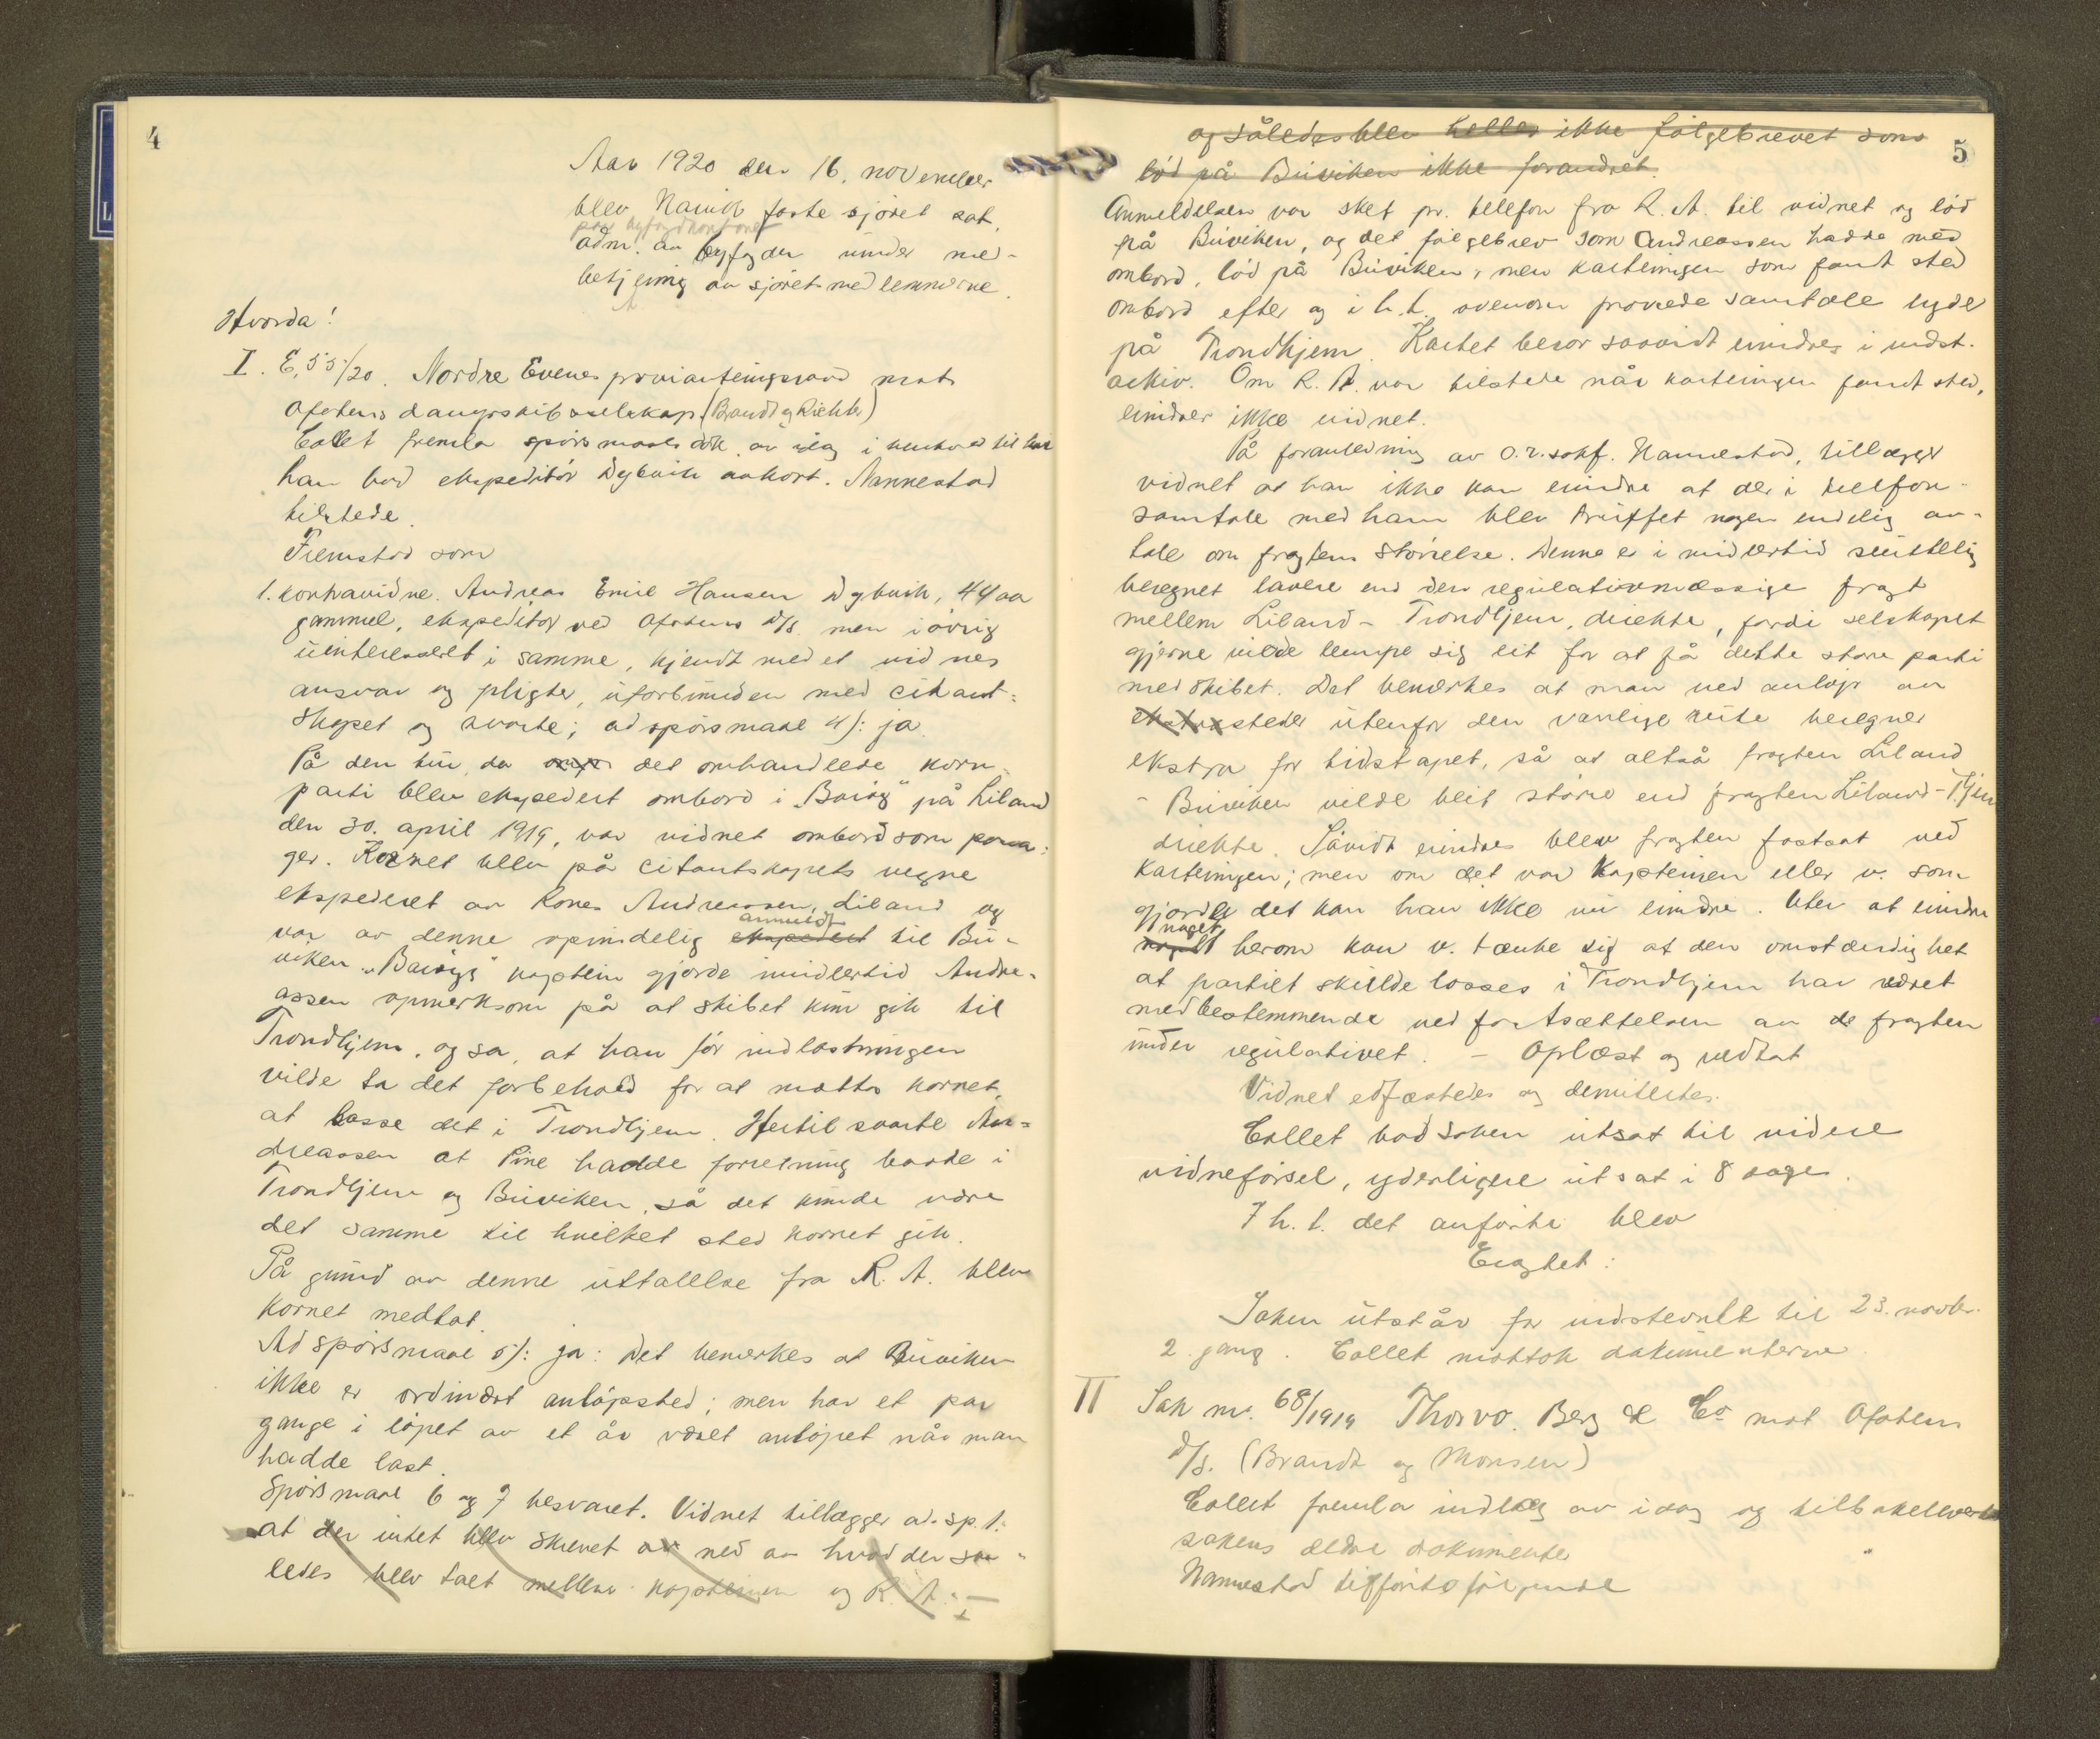 4
Aar 1920 den 16. november
blev Narvik faste sjöret sat,
paa byfogdkontoret
adm. av byfogden under med-
betjening av sjöretsmedlemmerne.
Hvorda!
I. E. 55/20. Nordre Evenes provianteringsraad mot
Ofotens dampskibsselskap. (Brandt og Richter)
Collet fremla spörsmaals dok. av idag i henhold til
han bad ekspeditör Dybvik avhört. Nannestad
tilstede.
Fremstod som
1. kontravidne. Andreas Emil Hansen Dybvik, 44 aar
gammel, ekspeditör ved Ofotens D/S. men iövrig
uinteresseret i samme, kjendt med et vidnes
ansvar og pligter, uforbunden med citant-
skapet og svarte; ad spörsmaal 4): ja.
På den tur, da det omhandlede korn-
parti blev ekspedert ombord i "Baröy" på Liland
den 30. april 1919, var vidnet ombord som passa-
ger. Kornet blev på citantskapets vegne
ekspederet av Kones Andreassen, Liland og
anmeldt
var av denne oprindelig ekspedert til Bu-
viken. "Baröys" kaptein gjorde imidlertid Andre-
assen opmerksom på at skibet kun gik til
Trondhjem, og sa, at han för indlastningen
vilde ta det forbehold for at motta kornet,
at losse det i Trondhjem. Hertil svarte An-
dreassen at Pine hadde forretning baade i
Trondhjem og Buviken, så det kunde være
det samme til hvilket sted kornet gik.
På grund av denne uttallelse fra R. A. blev
kornet medtat.
Ad spörsmaal 5): ja: Det bemerkes at Buviken
ikke er ordinært anlöpssted; men har et par
gange i löpet av et år været anlöpet når man
hadde last.
Spörsmaal 6 og 7 besvaret. Vidnet tillægger ad. sp. 1:
at der intet blev skrevet av ned av hvad der saa-
ledes blev talt mellem kapteinen og R. A.
5
og således blev heller ikke fölgebrevet som
löd på Buviken ikke forandret.
Anmeldelsen var sket pr. telefon fra R. A. til vidnet og löd
på Buviken, og det fölgebrev som Andreassen hadde med
ombord, löd på Buviken, men karteringen som fandt sted
ombord efter og i h.t. ovenom prövede samtale lyder
på Trondhjem. Kartet beror saavidt erindres i indst.
arkiv. Om R. A. var tilstede når karteringen fandt sted,
erindrer ikke vidnet.
På foranledning av o.r.sakf. Nannestad, tillægger
vidnet at han ikke kan erindre at der i telefon-
samtale med ham blev truffet nogen endelig av-
tale om fragtens störrelse. Denne er imidlertid sluttelig
beregnet lavere end den regulativmæssige fragt
mellem Liland - Trondhjem, direkte, fordi selskapet
gjerne vilde lempe sig litt for at få dette store parti
med skibet. Det bemerkes at man ved anlöp av
ekstrasteder utenfor den vanlige rute beregner
ekstra for tidstapet, så at altså fragten Liland
- Buviken vilde blit större end fragten Liland - T.hjem
direkte. Såvidt erindres blev fragten fastsat ved
karteringen; men om det var kapteinen eller v. som
gjorde det kan han ikke nu erindre. Uten at erindre
noget
herom kan v. tænke sig at den omstændighet
at partiet skulde losses i Trondhjem har været
medbestemmende ved fastsættelsen av de fragten
under regulativet. - Oplæst og vedtat
Vidnet edfæstedes og demitertes.
Collet bad saken utsat til videre
vidneförsel, yderligere utsat i 8 dager.
I h. t. det anförte blev
Eragtet:
Saken utstår for indstevnte til 23. novbr.
2. gang. Collet mottok dokumenterne.
II Sak nr. 68/1919 Thorvo. Berg & Co mot Ofotens
D/S. (Brandt og Monsen)
Collet fremla indlæg av idag og tilbakeleverte
sakens ældre dokumenter
Nannestad tilförte fölgende